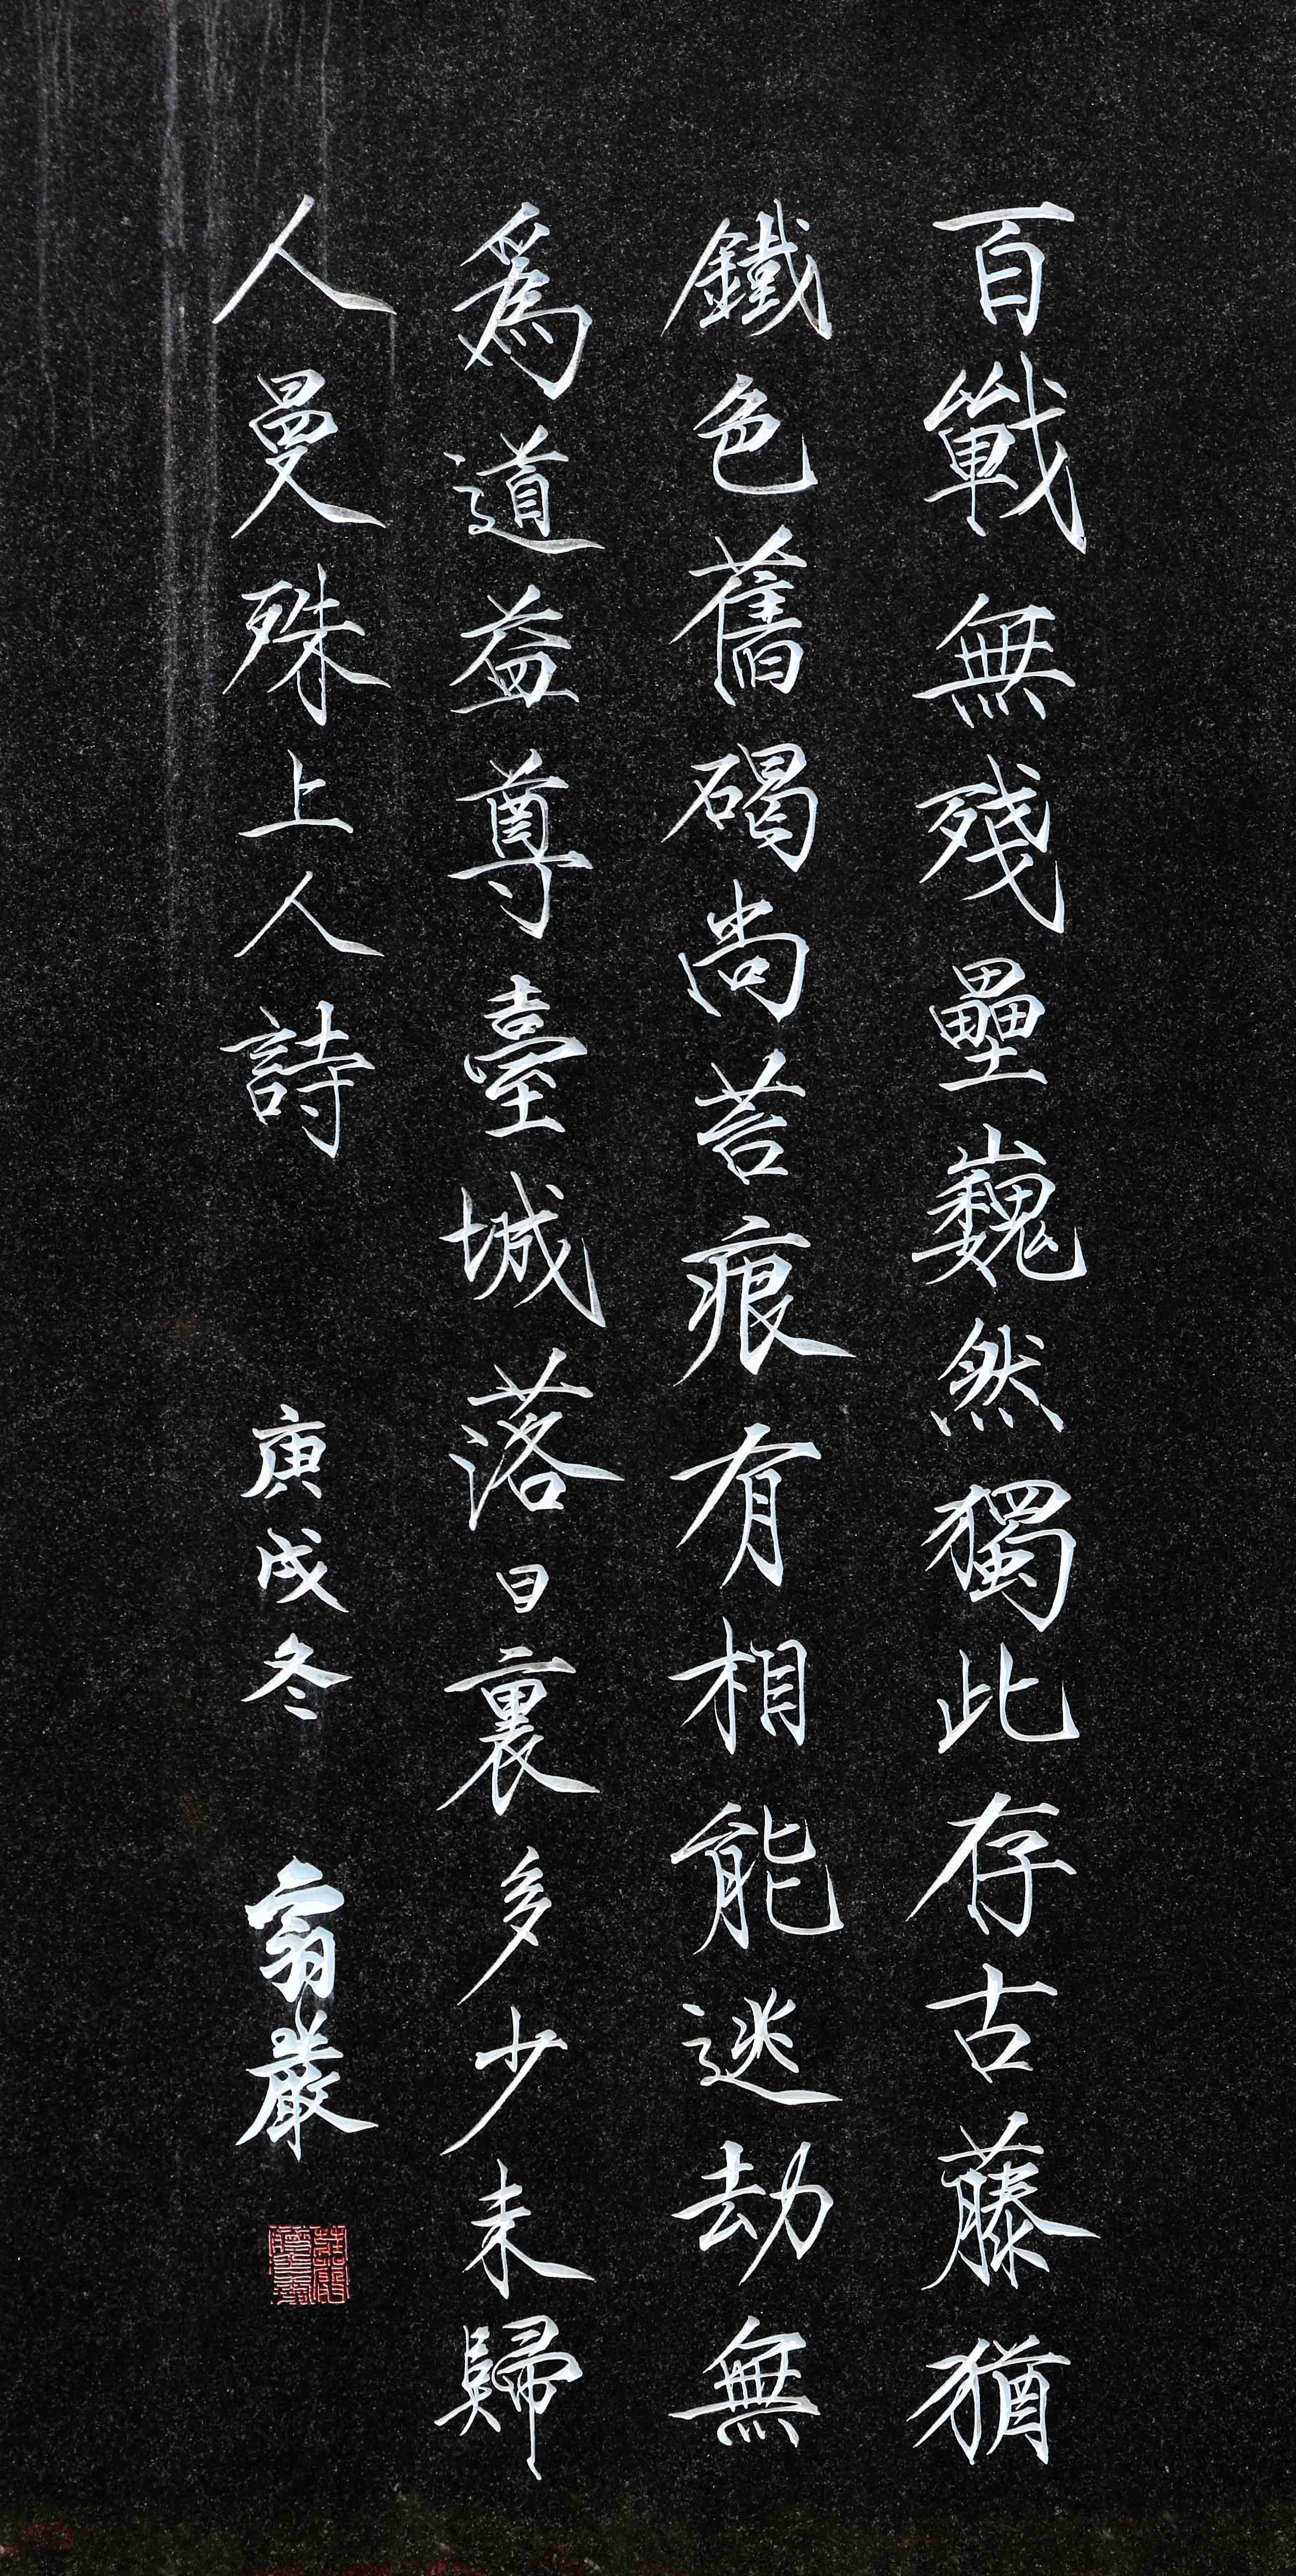 百戰無殘壘巍然獨此存古藤猶
鐵色舊碣尚苔痕有相能逃劫無
爲道益尊臺城落日裏多少未歸
人曼殊上人詩 庚戌冬 翁嚴